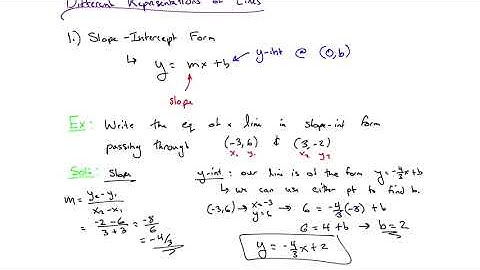 Different Representations of Lines
1.) Slope-Intercept Form
↳ y = mx + b y-int @ (0,b)
slope
Ex: Write the eq of a line in slope-int form
passing through (-3,6) & (3,-2)
x₁ y₁ x₂ y₂
Soln: Slope
m = y₂-y₁ / x₂-x₁
= -2-6 / 3+3 = -8/6
= -4/3
y-int: our line is of the form y = -4/3x + b
↳ we can use either pt to find b.
(-3,6) → x=-3 y=6 → 6 = -4/3(-3) + b
6 = 4 + b → b = 2
y = -4/3x + 2